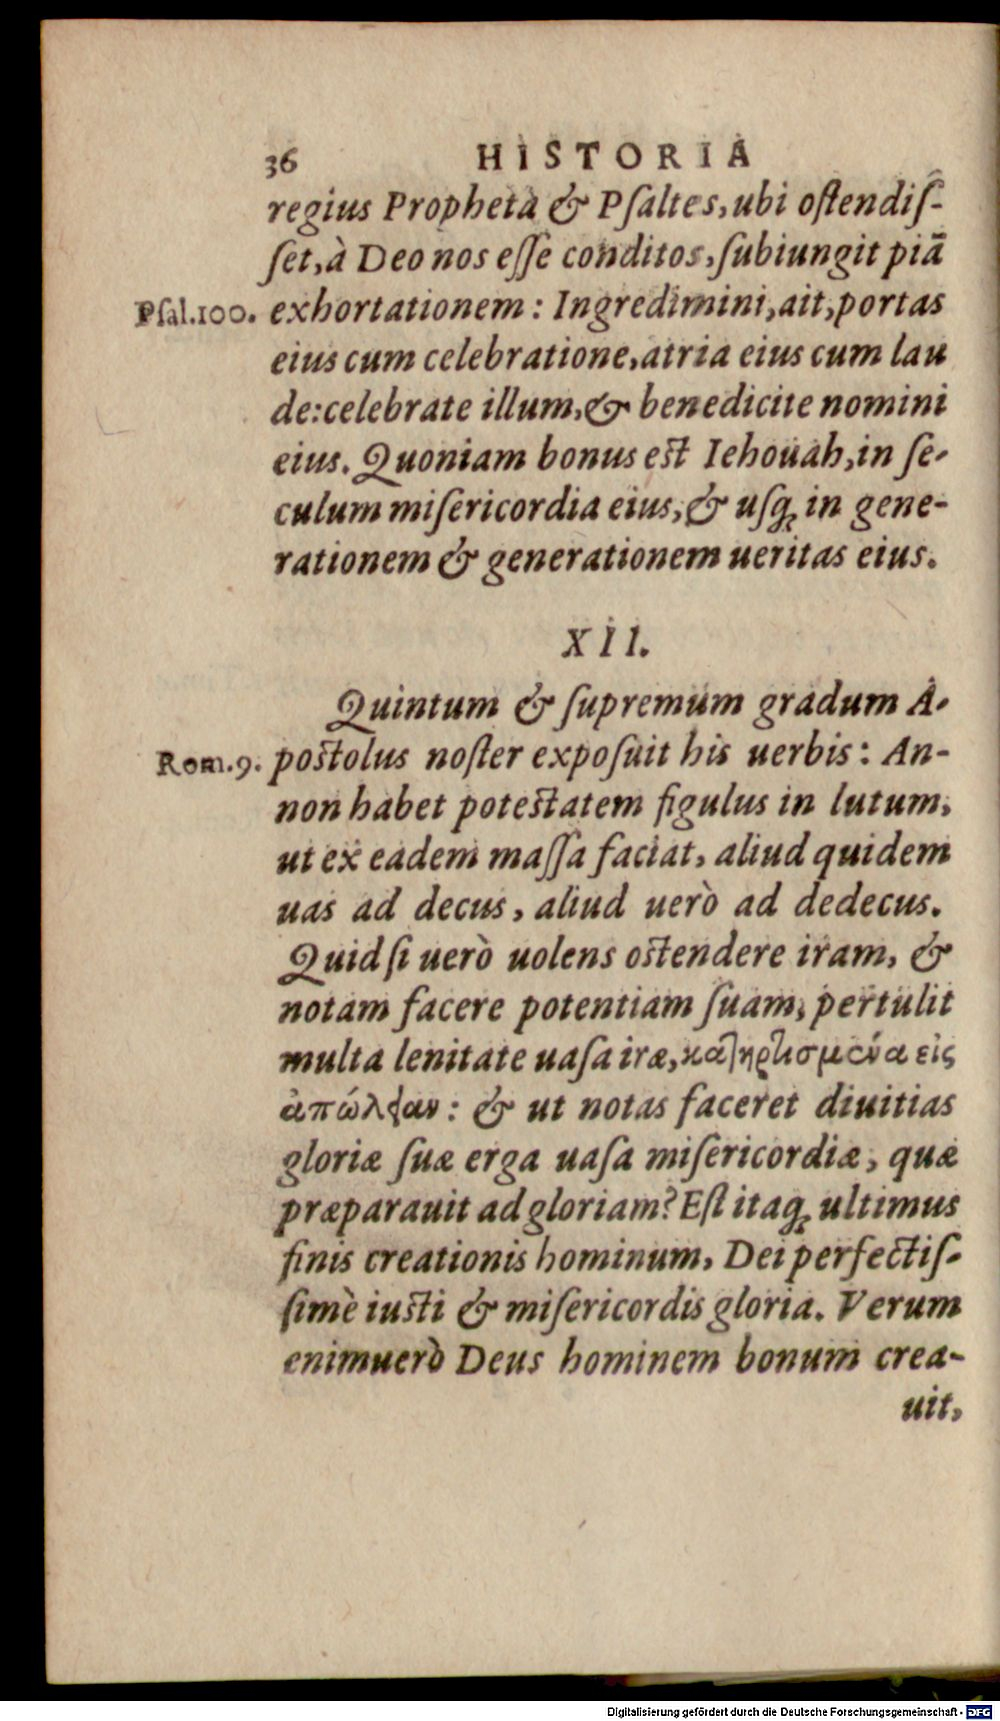 36 HISTORIA
regius Propheta & Pſaltes, ubi oſtendiſ-
ſet, à Deo nos eſſe conditos, ſubiungit piā
Pſal.100. exhortationem: Ingredimini, ait, portas
eius cum celebratione, atria eius cum lau
de: celebrate illum, & benedicite nomini
eius. Quoniam bonus est Iehouah, in ſe-
culum miſericordia eius, & uſq; in gene-
rationem & generationem ueritas eius.
XII.
Quintum & ſupremum gradum A-
Rom.9. postolus noſter expoſuit his uerbis: An-
non habet potestatem figulus in lutum,
ut ex eadem maſſa faciat, aliud quidem
uas ad decus, aliud uerò ad dedecus.
Quid ſi uerò uolens ostendere iram, &
notam facere potentiam ſuam, pertulit
multa lenitate uaſa iræ, κατηρτισμένα εἰς
ἀπώλειαν: & ut notas faceret diuitias
gloriæ ſuæ erga uaſa miſericordiæ, quæ
præparauit ad gloriam? Eſt itaq; ultimus
finis creationis hominum, Dei perfectiſ-
ſimè iusti & miſericordis gloria. Verum
enimuerò Deus hominem bonum crea-
uit,
Digitalisierung gefördert durch die Deutsche Forschungsgemeinschaft - DFG